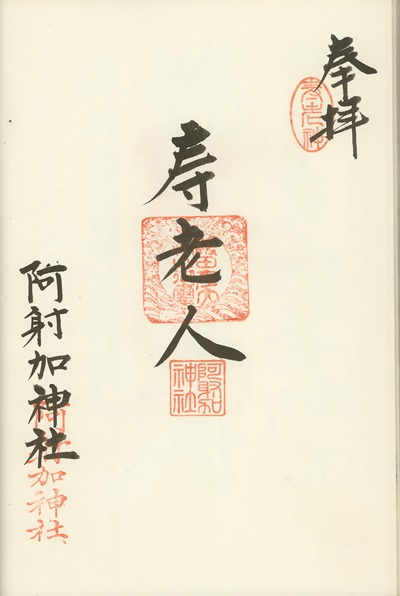 奉拝
寿老人
阿射加神社
阿射加
神社
加神社